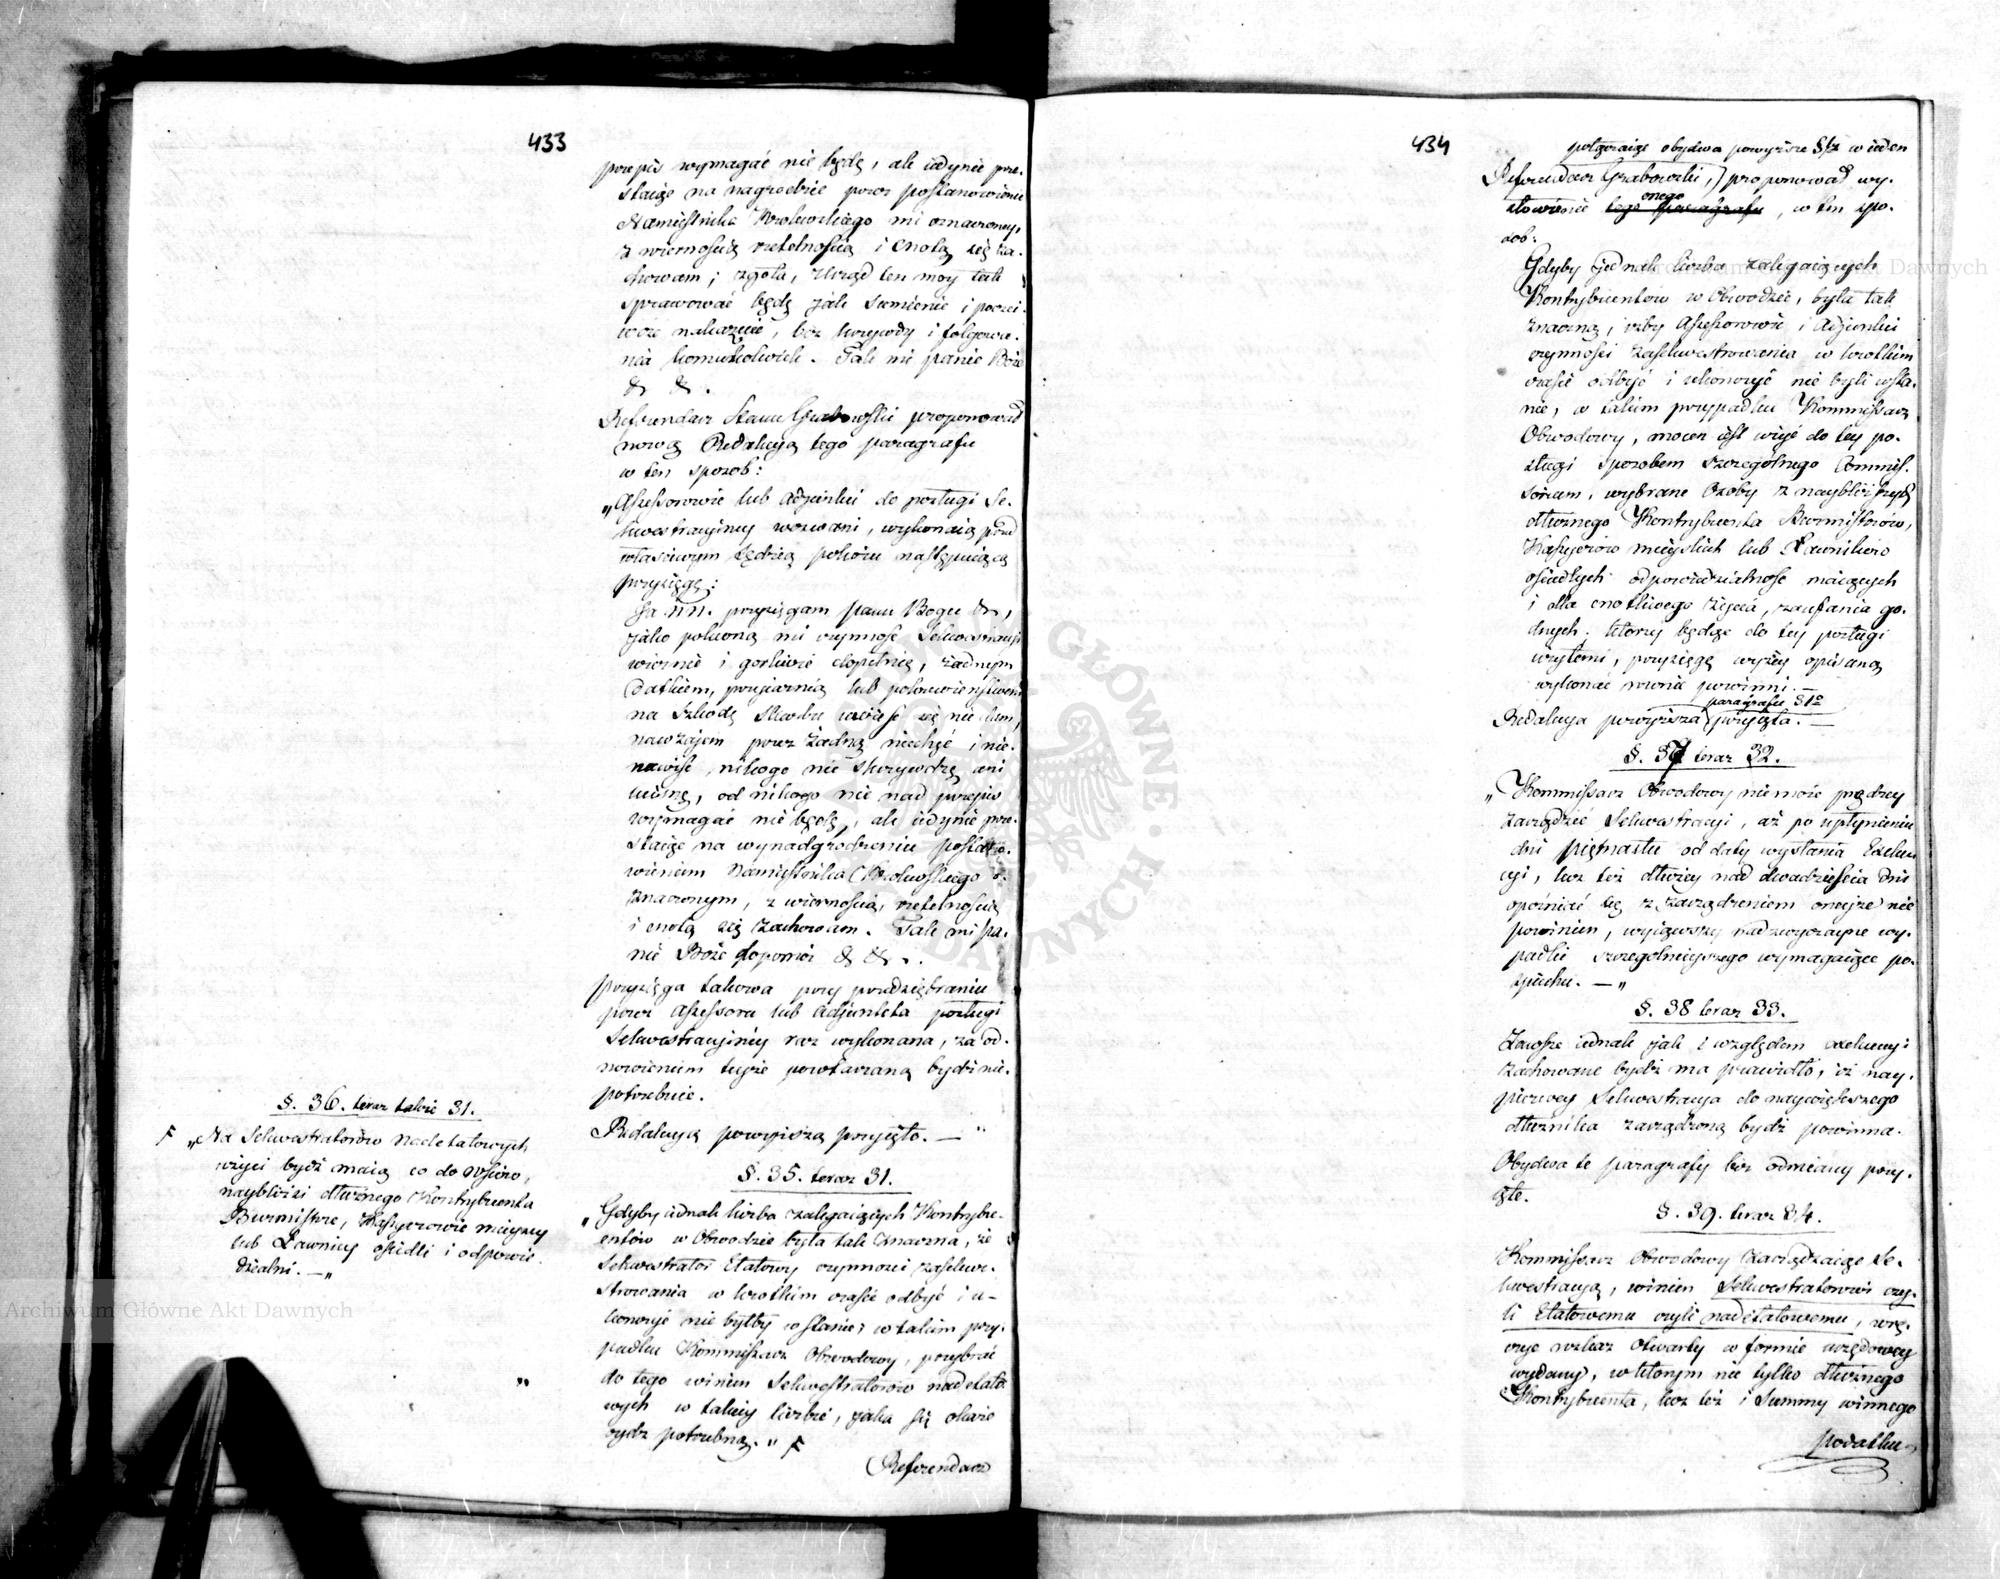 433
przepis wymagać nie będę, ale iedynie prze-
staiąc na nagrodzie przez postanowienie
Namiestnika Krolewskiego mi oznaczoney,
z wiernością rzetelnością i cnotą się za-
chowam; zgoła, Urząd ten moy tak
sprawować będę jak sumienie i poczci-
wość nakazuie, bez krzywdy i folgowa-
nia komużkolwiek. Tak mi panie Boże
& &.
Referendarz Stanu Grabowski proponował
nową Redakcyą tego paragrafu
w ten sposob:
„Assessorowie lub Adjunkci do posługi Se-
kwestracyiney wezwani, wykonaią przed
właściwym Sędzią pokoiu następuiącą
przysięgę:
Ja NN. przysięgam panu Bogu &,
jako poleconą mi czynność Sekwestracyi
wiernie i gorliwie dopełnię, żadnym
datkiem, przyiaznią lub pokrewieństwem
na szkodę Skarbu uwieść się nie dam,
nawzajem przez żadną niechęć i nie-
nawiść, nikogo nie skrzywdzę ani
ucisnę, od nikogo nic nad przepis
wymagać nie będę, ale iedynie prze-
staiąc na wynadgrodzeniu postano-
wieniem Namiestnika Krolewskiego o-
znaczonym, z wiernością, rzetelnością
i cnotą się zachowam. Tak mi pa-
nie Boże dopomóż & &.
Przysięga takowa przy przedsiębraniu
przez Assessora lub Adjunkta posługi
Sekwestracyiney raz wykonana, za od-
nowieniem teyże powtarzaną bydź nie-
potrzebuie.
Redakcyą powyższą przyięto. — "
§. 35. teraz 31.
„Gdyby iednak liczba zalegaiących Kontrybu-
entów w Obwodzie była tak znaczna, że
Sekwestrator Etatowy czynnosci zasekwe-
strowania w krotkim czasie odbyć i u-
kończyć nie byłby w stanie; w takim przy-
padku Kommissarz Obwodowy, przybrać
do tego winien Sekwestratorów nadetato-
wych w takiey liczbie, jaka się okaże
bydz potrzebną." F
Referendarz
§. 36. teraz także 31.
F „Na Sekwestratorów nadetatowych
użyci bydź maią co do wsiów,
naybliżsi dłużnego Kontrybuenta
Burmistrze, Kassyerowie mieyscy
lub Ławnicy osiedli i odpowie-
dzialni. — „
„
434
połączaiąc obydwa powyższe §§y w ieden
Referendarz Grabowski, proponował wy-
onego
słowienie tego paragrafu, w ten spo-
sob:
Gdyby jednak liczba zalegaiących
Kontrybuentów w Obwodzie, była tak
znaczną, iżby Assessorowie i Adjunkci
czynności zasekwestrowania w krotkim
czasie odbyć i ukończyć nie byli wsta-
nie, w takim przypadku Kommissarz
Obwodowy, mocen iest użyć do tey po-
sługi sposobem szczególnego Commis-
sorium, wybrane Osoby z naybliższych
dłużnego Kontrybuenta Burmistrzów,
Kassyerów mieyskich lub Ławników
osiadłych odpowiedzialnosc maiących
i dla cnotliwego życia, zaufania go-
dnych; którzy będąc do tey posługi
użytemi, przysięgę wyżey opisaną
wykonać równie powinni. —
paragrafu 31o
Redakcya powyższa przyięta. —
§. 37 teraz 32.
„Kommissarz Obwodowy nie może prędzey
zarządzić Sekwestracyi, aż po upłynieniu
dni piętnastu od daty wysłania Exeku-
cyi, lecz też dłużey nad dwadzieścia dni
opóźniać się z zarządzeniem oneyże nie
powinien, wyiąwszy nadzwyczayne wy-
padki szczególnieyszego wymagaiące po-
spiechu. — „
§. 38 teraz 33.
Zawsze iednak jak i względem exekucyi
zachowane bydź ma prawidło, iż nay-
pierwey Sekwestracya do naywiększego
dłużnika zarządzoną bydź powinna.
Obydwa te paragrafy bez odmiany przy-
ięte.
§. 39. teraz 34.
Kommissarz Obwodowy zarządzaiąc Se-
kwestracyą, winien Sekwestratorowi czy-
li Etatowemu czyli nadetatowemu, wrę-
czyć rozkaz otwarty w formie urzędowey
wydany, w którym nie tylko dłużnego
Kontrybuenta, lecz też i Summy winnego
podatku